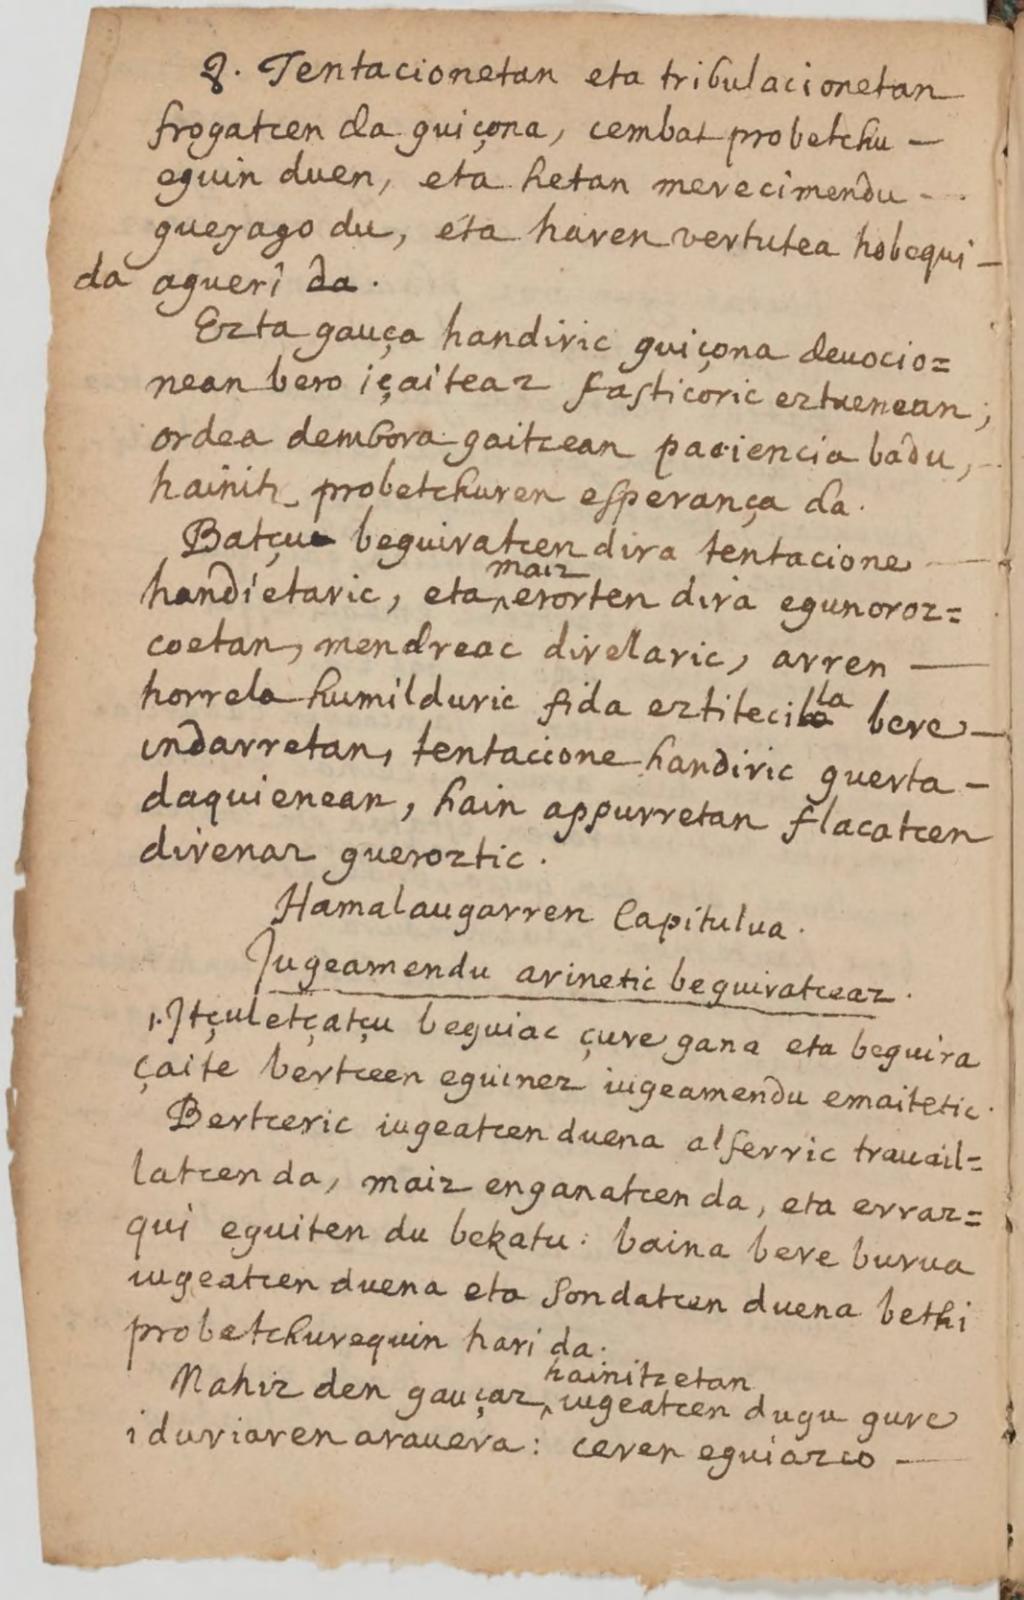 8. Tentacionetan eta tribulacionetan
frogatcen da guiçona, cembat probetchu —
eguin duen, eta hetan merecimendu —
gueyago du, eta haren vertutea hobequi —
da agueri da.
Ezta gauça handiric guiçona deuocio=
nean bero içaiteaz fasticoric eztuenean;
ordea dembora gaitcean paciencia badu,
hainitz probetchuren esperança da.
Batçu beguiratcen dira tentacione —
handietaric, eta maiz erorten dira egunoroz=
coetan, mendreac direlaric, arren —
horrela humilduric fida eztitecila bere —
indarretan, tentacione handiric guerta —
daquienean, hain appurretan flacatcen
direnaz gueroztic.
Hamalaugarren Capitulua.
Jugeamendu arinetic beguiratceaz.
1. Itçuletçatçu beguiac çure gana eta beguira
çaite bertceen eguinez iugeamendu emaitetic.
Bertceric iugeatcen duena alferric trauail=
latcen da, maiz enganatcen da, eta erraz=
qui eguiten du bekatu: baina bere burua
iugeatcen duena eta sondatcen duena bethi
probetchurequin hari da.
Nahiz den gauçaz hainitzetan iugeatcen dugu gure
iduriaren arauera: ceren eguiazco —